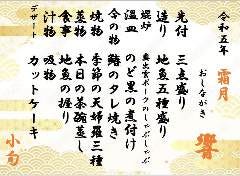 令和五年
霜月
おしながき
響
先付 三点盛り
造り 地魚五種盛り
焜炉 奥出雲ポークのしゃぶしゃぶ
温皿 のど黒の煮付け
合の物 鰤のタレ焼き
焼物 季節の天婦羅三種
蒸物 本日の茶碗蒸し
食事 地魚の握り
汁物 吸物
デザート カットケーキ
小旬